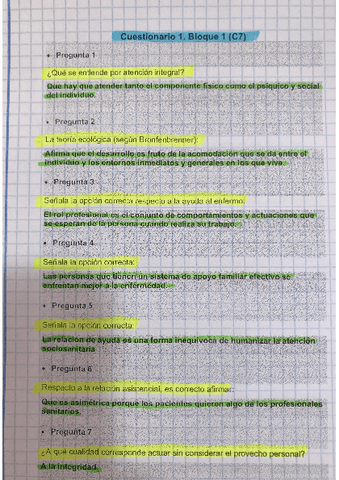 Cuestionario 1. Bloque 1 (C7)
• Pregunta 1
¿Qué se entiende por atención integral?
Que hay que atender tanto el componente físico como el psíquico y social
del individuo.
• Pregunta 2
La teoría ecológica (según Bronfenbrenner):
Afirma que el desarrollo es fruto de la acomodación que se da entre el
individuo y los entornos inmediatos y generales en los que vive.
• Pregunta 3
Señala la opción correcta respecto a la ayuda al enfermo.
El rol profesional es el conjunto de comportamientos y actuaciones que
se esperan de la persona cuando realiza su trabajo.
• Pregunta 4
Señala la opción correcta:
Las personas que tienen un sistema de apoyo familiar efectivo se
enfrentan mejor a la enfermedad.
• Pregunta 5
Señala la opción correcta
La relación de ayuda es una forma inequívoca de humanizar la atención
sociosanitaria
• Pregunta 6
Respecto a la relación asistencial, es correcto afirmar:
Que es asimétrica porque los pacientes quieren algo de los profesionales
sanitarios.
• Pregunta 7
¿A qué cualidad corresponde actuar sin considerar el provecho personal?
A la integridad.